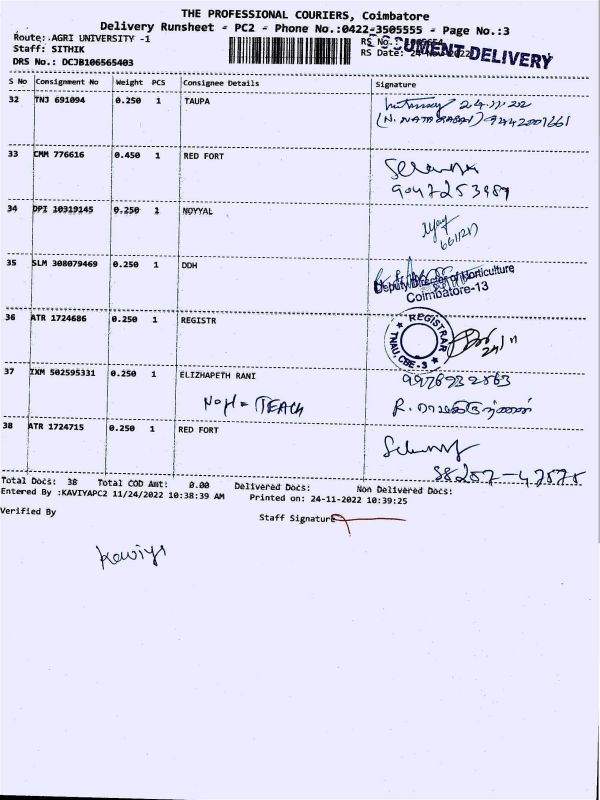 THE PROFESSIONAL COURIERS, Coimbatore
Delivery Runsheet - PC2 - Phone No.:0422-3505555 - Page No.:3
Route: AGRI UNIVERSITY -1
RS No.
DOCUMENT DELIVERY
Staff: SITHIK
RS Date: 24-Nov-2022
DRS No.: DCJB106565403
S No Consignment No Weight PCS Consignee Details Signature
32 TNJ 691094 0.250 1 TAUPA 24.11.22
(N. NATARAJAN) 9442001661
33 CMM 776616 0.450 1 RED FORT
34 DPI 10319145 0.250 1 NOYYAL
35 SLM 308079469 0.250 1 DDH
Deputy Director of Horticulture
Coimbatore-13
36 ATR 1724686 0.250 1 REGISTR
REGISTRAR
TNAU, CBE-3
37 IXM 502595331 0.250 1 ELIZHAPETH RANI
38 ATR 1724715 0.250 1 RED FORT
Total Docs: 38 Total COD Amt: 0.00 Delivered Docs: Non Delivered Docs:
Entered By :KAVIYAPC2 11/24/2022 10:38:39 AM Printed on: 24-11-2022 10:39:25
Verified By
Staff Signature
Kaviya